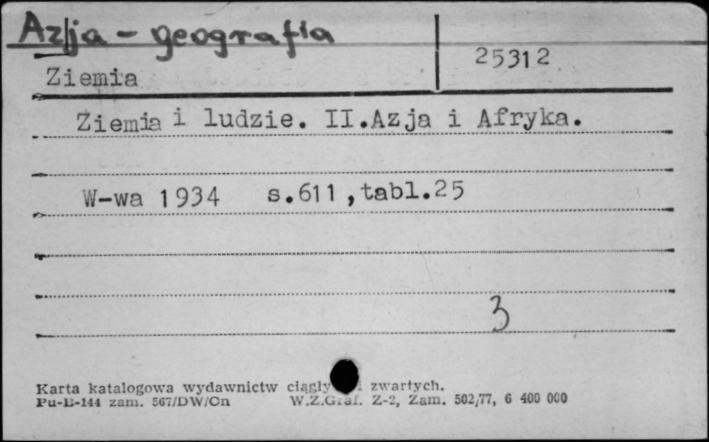 Azja - geografia
25312
Ziemia
Ziemia i ludzie. II.Azja i Afryka.
W-wa 1934 s.611,tabl.25
3
Karta katalogowa wydawnictw zwartych.
Pu-B-144 zam. 567/DW/Cn W.Z.Graf. Z-2, Zam. 502/77, 6 400 000